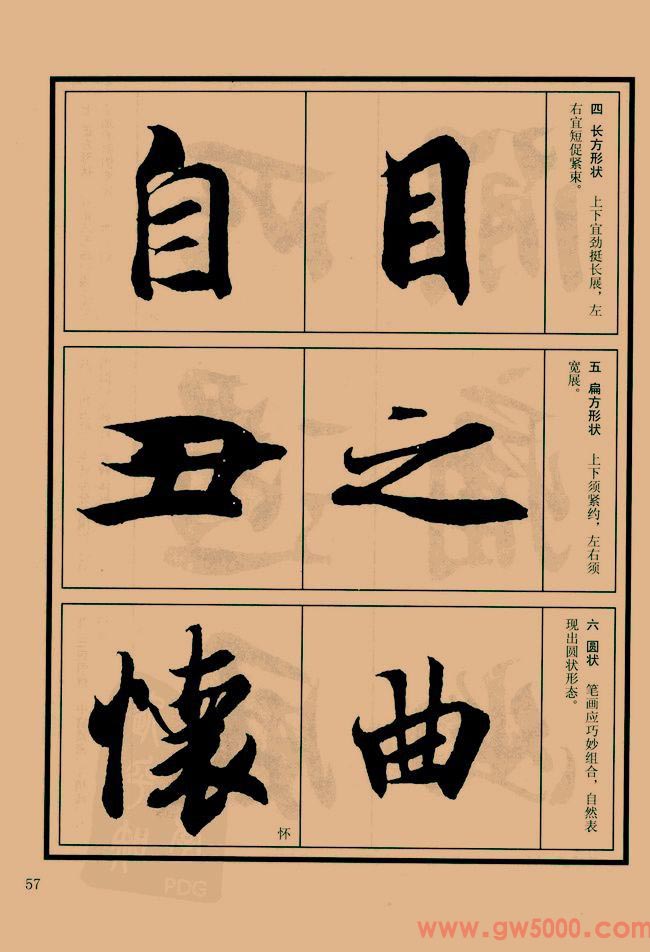 四 长方形状 上下宜劲挺长展，左
右宜短促紧束。
目
自
五 扁方形状 上下须紧约，左右须
宽展。
之
丑
六 圆状 笔画应巧妙组合，自然表
现出圆状形态。
曲
懷
怀
57
PDG
www.gw5000.com